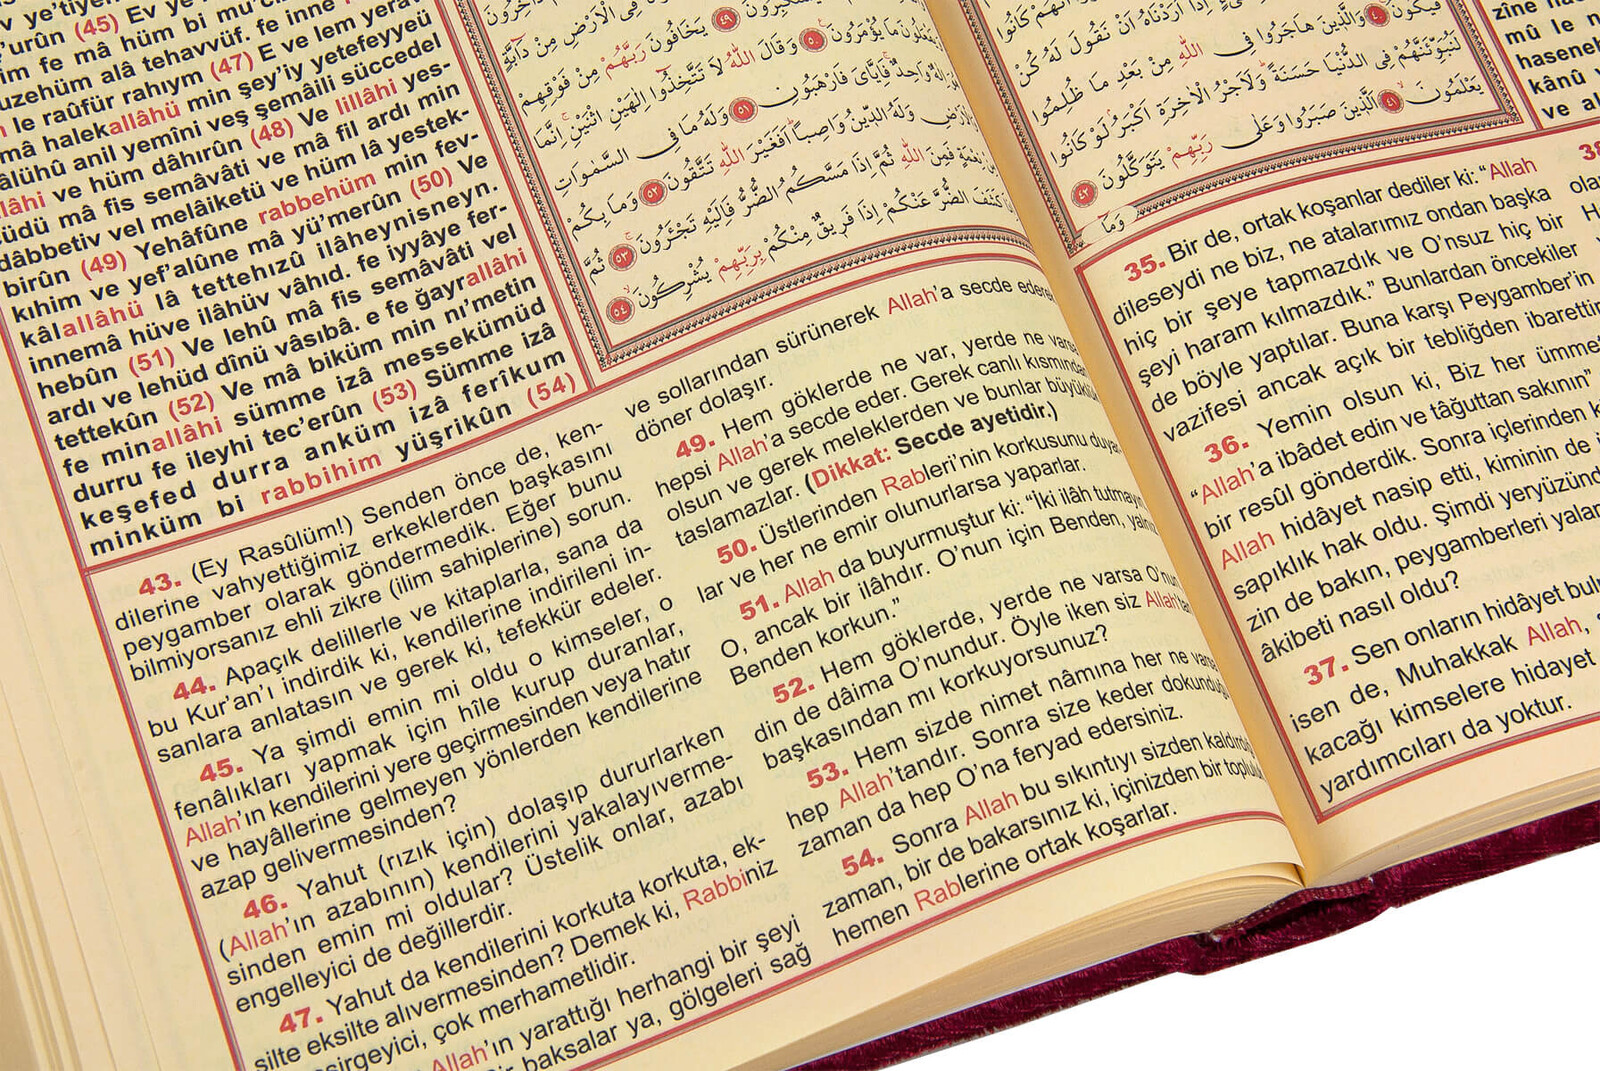 (45) Ev ye
im fe mâ hüm bi mu'ci
uzehüm alâ tehavvüf. fe inne
le raûfür rahıym (47) E ve lem yerav
mâ halekallâhü min şey'iy yetefeyyeü
âlühû anil yemîni veş şemâili süccedel
lâhi ve hüm dâhırûn (48) Ve lillâhi yes-
üdü mâ fis semâvâti ve mâ fil ardı min
dâbbetiv vel melâiketü ve hüm lâ yestek-
birûn (49) Yehâfûne rabbehüm min fev-
kıhim ve yef'alûne mâ yü'merûn (50) Ve
kâlallâhü lâ tettehızû ilâheynisneyn.
innemâ hüve ilâhüv vâhıd. fe iyyâye fer-
hebûn (51) Ve lehû mâ fis semâvâti vel
ardı ve lehüd dînü vâsıbâ. e fe ğayrallâhi
tettekûn (52) Ve mâ biküm min nı'metin
fe minallâhi sümme izâ messekümüd
durru fe ileyhi tec'erûn (53) Sümme izâ
keşefed durra anküm izâ ferîkum
minküm bi rabbihim yüşrikûn (54)
يَخَافُونَ رَبَّهُمْ مِنْ فَوْقِهِمْ
وَقَالَ اللّٰهُ لَا تَتَّخِذُوا اِلٰهَيْنِ اثْنَيْنِ اِنَّمَا
فَاِيَّايَ فَارْهَبُونِ ﴿٥١﴾ وَلَهُ مَا فِى السَّمٰوَاتِ
وَلَهُ الدِّينُ وَاصِبًا اَفَغَيْرَ اللّٰهِ تَتَّقُونَ ﴿٥٢﴾ وَمَا بِكُمْ
فَمِنَ اللّٰهِ ثُمَّ اِذَا مَسَّكُمُ الضُّرُّ فَاِلَيْهِ تَجْـَٔرُونَ ﴿٥٣﴾ ثُمَّ
كَشَفَ الضُّرَّ عَنْكُمْ اِذَا فَرِيقٌ مِنْكُمْ بِرَبِّهِمْ يُشْرِكُونَ ﴿٥٤﴾
43. (Ey Rasûlüm!) Senden önce de, ken-
dilerine vahyettiğimiz erkeklerden başkasını
peygamber olarak göndermedik. Eğer bunu
bilmiyorsanız ehli zikre (ilim sahiplerine) sorun.
44. Apaçık delillerle ve kitaplarla, sana da
bu Kur'an'ı indirdik ki, kendilerine indirileni in-
sanlara anlatasın ve gerek ki, tefekkür edeler.
45. Ya şimdi emin mi oldu o kimseler, o
fenâlıkları yapmak için hîle kurup duranlar,
Allah'ın kendilerini yere geçirmesinden veya hatır
ve hayâllerine gelmeyen yönlerden kendilerine
azap gelivermesinden?
46. Yahut (rızık için) dolaşıp dururlarken
(Allah'ın azabının) kendilerini yakalayıverme-
sinden emin mi oldular? Üstelik onlar, azabı
engelleyici de değillerdir.
47. Yahut da kendilerini korkuta korkuta, ek-
silte eksilte alıvermesinden? Demek ki, Rabbiniz
esirgeyici, çok merhametlidir.
Allah'ın yarattığı herhangi bir şeyi
baksalar ya, gölgeleri sağ
ve sollarından sürünerek Allah'a secde ederek
döner dolaşır.
49. Hem göklerde ne var, yerde ne varsa
hepsi Allah'a secde eder. Gerek canlı kısmından
olsun ve gerek meleklerden ve bunlar büyüklük
taslamazlar. (Dikkat: Secde ayetidir.)
50. Üstlerinden Rableri'nin korkusunu duyar
lar ve her ne emir olunurlarsa yaparlar.
51. Allah da buyurmuştur ki: "İki ilâh tutmayın
O, ancak bir ilâhdır. O'nun için Benden, yalnız
Benden korkun."
52. Hem göklerde, yerde ne varsa O'nun
din de dâima O'nundur. Öyle iken siz Allah'tan
başkasından mı korkuyorsunuz?
53. Hem sizde nimet nâmına her ne varsa
hep Allah'tandır. Sonra size keder dokunduğu
zaman da hep O'na feryad edersiniz.
54. Sonra Allah bu sıkıntıyı sizden kaldırdığı
zaman, bir de bakarsınız ki, içinizden bir topluluk
hemen Rablerine ortak koşarlar.
فَيَكُونُ ﴿٤٠﴾ وَالَّذِينَ هَاجَرُوا فِى اللّٰهِ مِنْ بَعْدِ مَا ظُلِمُوا
لَنُبَوِّئَنَّهُمْ فِى الدُّنْيَا حَسَنَةً وَلَاَجْرُ الْاٰخِرَةِ اَكْبَرُ لَوْ كَانُوا
يَعْلَمُونَ ﴿٤١﴾ الَّذِينَ صَبَرُوا وَعَلٰى رَبِّهِمْ يَتَوَكَّلُونَ ﴿٤٢﴾
وَمَا
zîne hâ
mû le n
haseneh
kânû
ve al
35. Bir de, ortak koşanlar dediler ki: "Allah
dileseydi ne biz, ne atalarımız ondan başka
hiç bir şeye tapmazdık ve O'nsuz hiç bir
şeyi haram kılmazdık." Bunlardan öncekiler
de böyle yaptılar. Buna karşı Peygamber'in
vazifesi ancak açık bir tebliğden ibarettir
36. Yemin olsun ki, Biz her ümmet
"Allah'a ibâdet edin ve tâğuttan sakının"
bir resûl gönderdik. Sonra içlerinden k
Allah hidâyet nasip etti, kiminin de
sapıklık hak oldu. Şimdi yeryüzünd
zin de bakın, peygamberleri yalan
âkibeti nasıl oldu?
37. Sen onların hidâyet bul
isen de, Muhakkak Allah,
kacağı kimselere hidayet
yardımcıları da yoktur.
38
olar
H